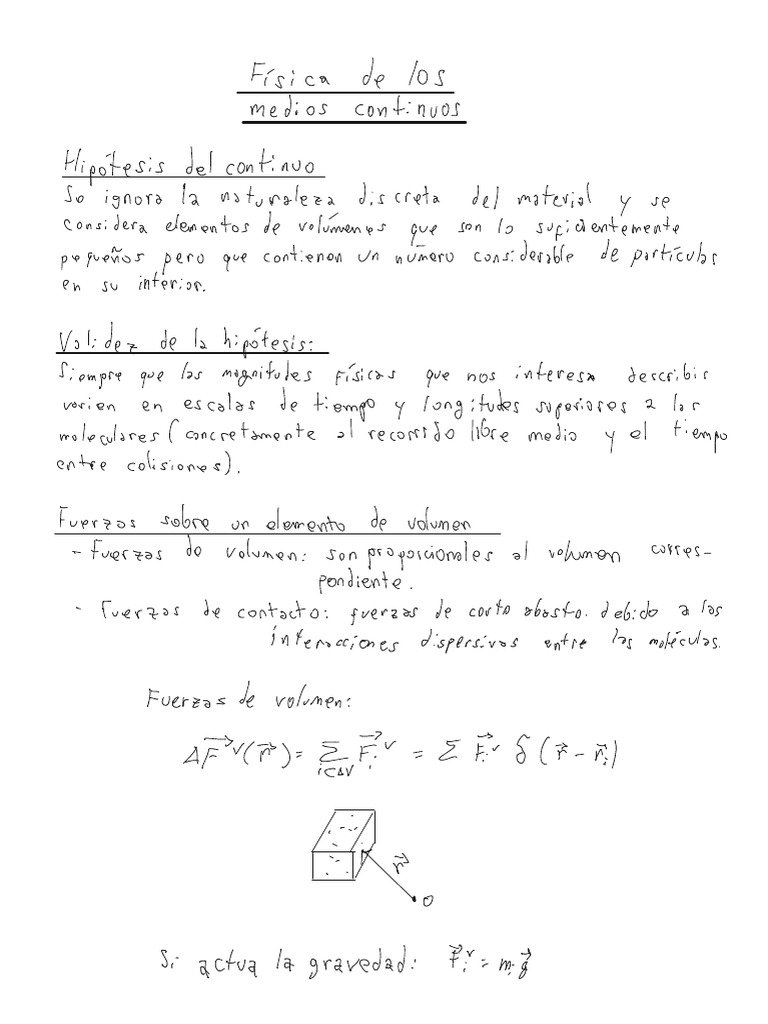 Física de los
medios continuos
Hipótesis del continuo
Se ignora la naturaleza discreta del material y se
considera elementos de volúmenes que son lo suficientemente
pequeños pero que contienen un número considerable de partículas
en su interior.
Validez de la hipótesis:
Siempre que las magnitudes físicas que nos interesa describir
varien en escalas de tiempo y longitudes superiores a las
moleculares (concretamente al recorrido libre medio y el tiempo
entre colisiones).
Fuerzas sobre un elemento de volumen
- Fuerzas de volumen: son proporcionales al volumen corres-
pondiente.
- Fuerzas de contacto: fuerzas de corto abasto. debido a las
interacciones dispersivas entre las moléculas.
Fuerzas de volumen:
ΔF⃗ᵛ(r⃗) = Σ_{i⊂ΔV} F⃗ᵢᵛ = Σ F⃗ᵢᵛ δ(r⃗ - r⃗ᵢ)
r⃗
O
Si actua la gravedad: F⃗ᵢᵛ = mᵢg⃗